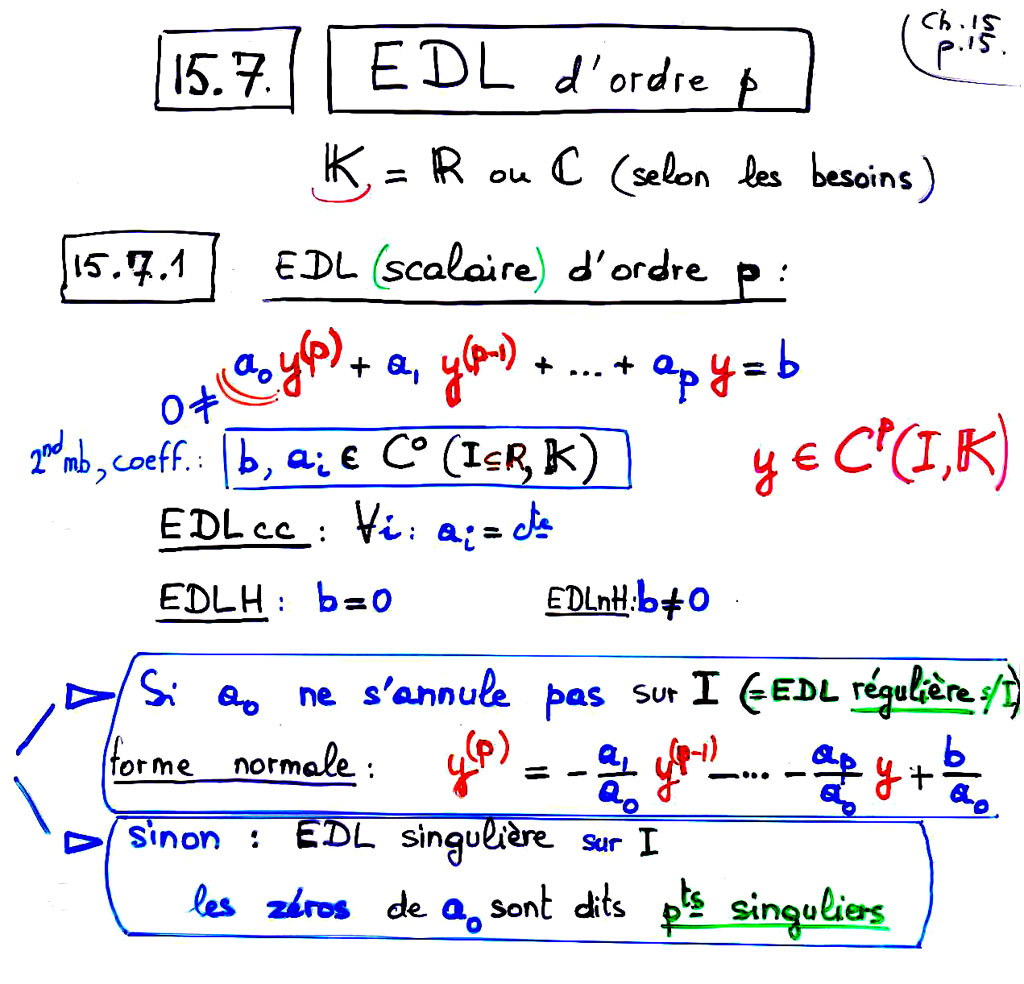 Ch.15
p.15.
15.7. EDL d'ordre p
𝕂 = ℝ ou ℂ (selon les besoins)
15.7.1 EDL (scalaire) d'ordre p :
a₀ y⁽ᵖ⁾ + a₁ y⁽ᵖ⁻¹⁾ + ... + aₚ y = b
0 ≠
2ⁿᵈ mb, coeff. : b, aᵢ ∈ C⁰ (I⊆ℝ, 𝕂) y ∈ Cᵖ(I, 𝕂)
EDLcc : ∀i : aᵢ = cᵗᵉ
EDLH : b=0 EDLnH : b≠0
Si a₀ ne s'annule pas sur I (=EDL régulière s/I)
forme normale : y⁽ᵖ⁾ = - a₁/a₀ y⁽ᵖ⁻¹⁾ - ... - aₚ/a₀ y + b/a₀
sinon : EDL singulière sur I
les zéros de a₀ sont dits pᵗˢ singuliers